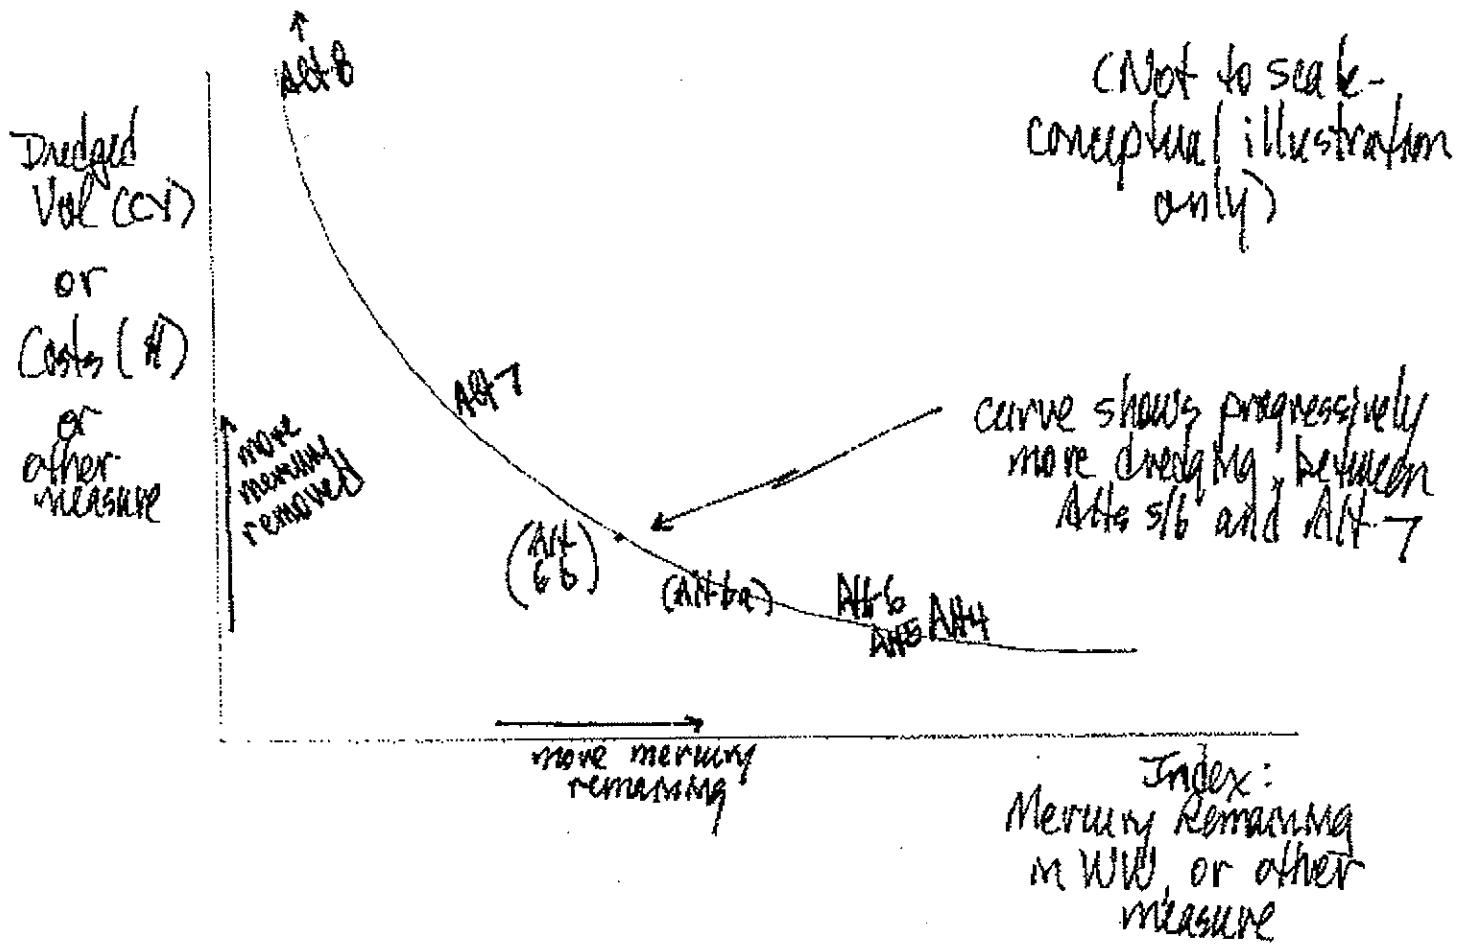 Alt 8
(Not to scale-
conceptual illustration
only)
Dredged
Vol (CY)
or
Costs ($)
or
other
measure
more
mercury
removed
Alt 7
curve shows progressively
more dredging between
Alts 5/6 and Alt 7
(Alt
6b)
(Alt 6a)
Alt 6
Alt 5
Alt 4
more mercury
remaining
Index:
Mercury Remaining
in WW, or other
measure